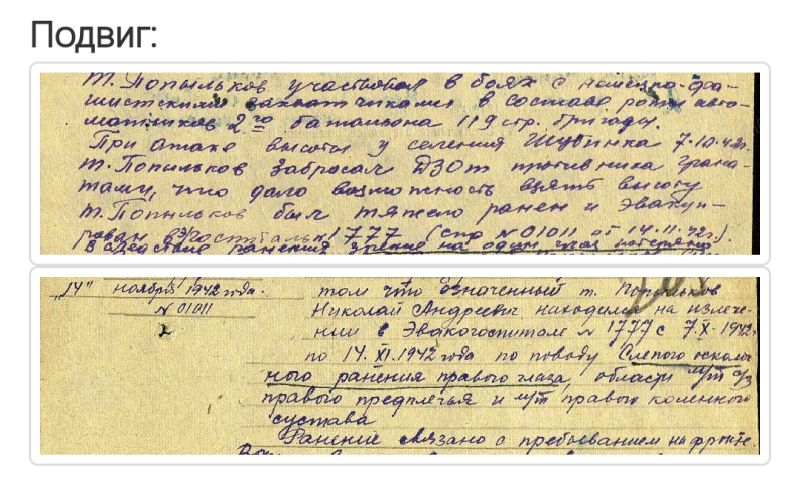 Подвиг:
т. Попыльков участвовал в боях с немецко-фа-
шистскими захватчиками в составе роты авто-
матчиков 2го батальона 119 стр. бригады.
При атаке высоты у селения Шубинка 7.10.42г.
т. Попыльков забросал ДЗОТ противника грана-
тами, что дало возможность взять высоту
т. Попыльков был тяжело ранен и эвакуи-
рован в 1777 (спр N 01011 от 14.11.42г.).
В следствие ранения зрение на один глаз потеряно
"14" ноября 1942 года. том что означенный т. Попыльков
N 01011 Николай Андреевич находился на излече-
2 нии в Эвакогоспитале N 1777 с 7.X.1942
по 14.XI.1942 года по поводу Слепого осколоч
ного ранения правого глаза, области м/т
правого предплечья и м/т правого коленного
сустава
Ранение связано с пребыванием на фронте.